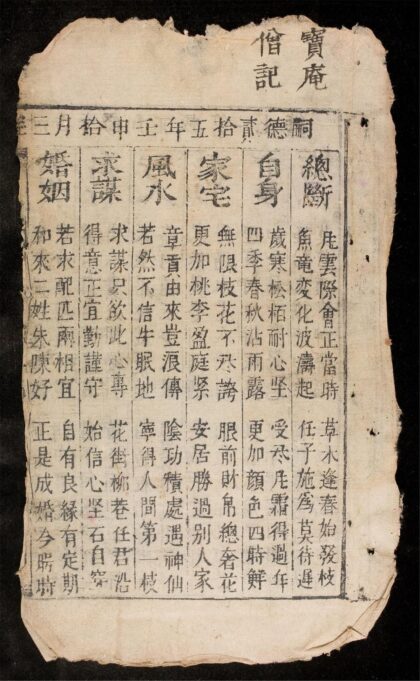 寶庵
僧記
嗣德貳拾五年壬申拾月三
總斷
凮雲際會正當時 草木逢春始發枝
魚竜變化波濤起 任子施為莫待遲
自身
歲寒松栢耐心坚 受尽凮霜得過年
四季春秋沾雨露 更加顔色四時鮮
家宅
無限枝花不尽誇 眼前財帛總奢花
更加桃李盈庭 安居勝過别人家
風水
章貢由來豈浪傳 陰功積處遇神仙
若然不信牛眠地 寧得人間第一
求謀
求謀只欲此心專 花街柳巷任君沿
得意正宜勤謹守 始信心坚石自穿
婚姻
若求配匹兩相宜 自有良緣有定期
和來二姓朱陳好 正是成婚今時